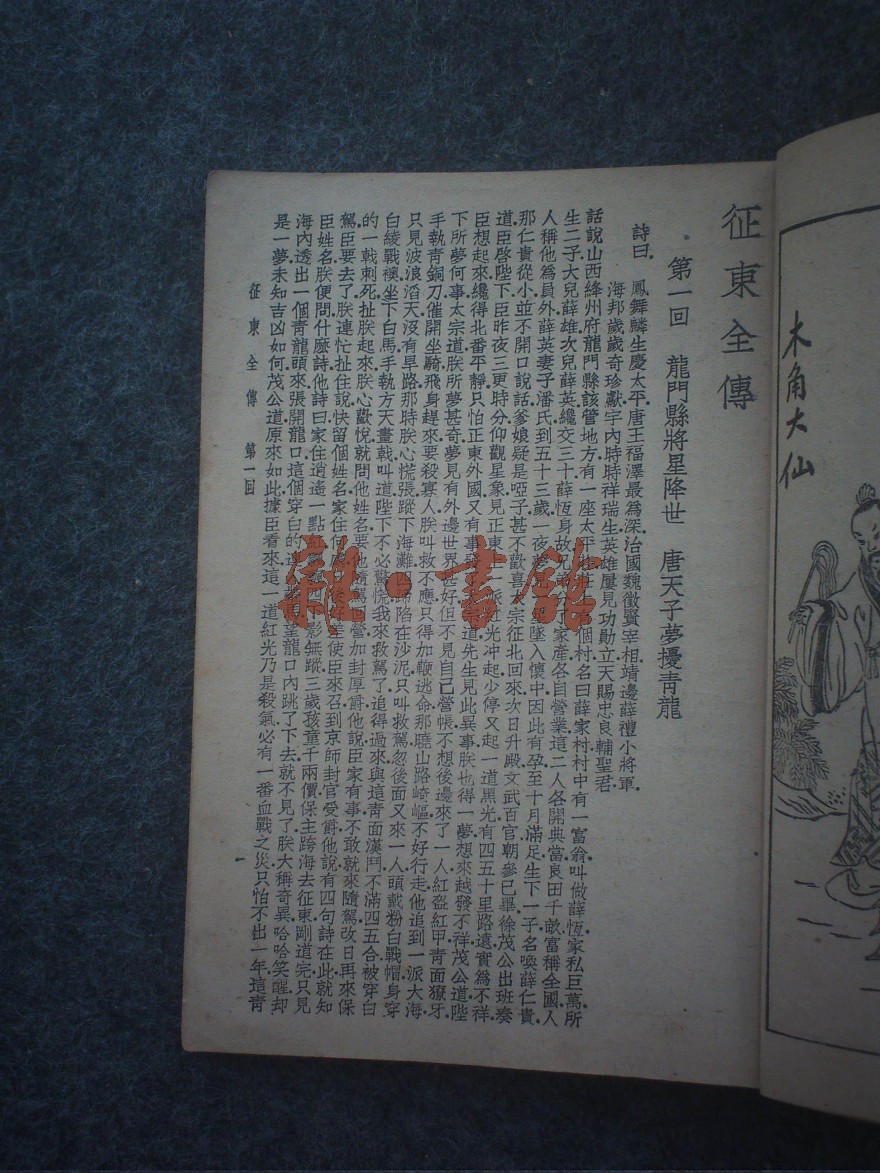 木角大仙
征東全傳
第一回　龍門縣將星降世　唐天子夢擾青龍
詩曰.鳳舞麟生慶太平.唐王福澤最為深.治國魏徵賢宰相.靖邊薛禮小將軍.
海邦歲歲奇珍獻.宇內時時祥瑞生.英雄屢見功勛立.天賜忠良輔聖君.
話說山西絳州府龍門縣該管地方.有一座太平莊.個村名曰薛家村.村中有一富翁.叫做薛恆.家私巨萬.所
生二子.大兒薛雄.次兒薛英.纔交三十.薛恆身故.兄弟了家產.各自營業.這二人各開典當.良田千畝.富稱全國.人
人稱他為員外.薛英妻子潘氏.到五十三歲.一夜夢見星墜入懷中.因此有孕.至十月滿足.生下一子.名喚薛仁貴.
那仁貴從小並不開口說話.爹娘疑是啞子.甚不歡喜.太宗征北回來.次日升殿.文武百官朝參已畢.徐茂公出班奏
道.臣啓陛下.臣昨夜三更時分.仰觀星象.見正東上一派紅光冲起.少停又起一道黑光.有四五十里路遠.實為不祥.
臣想起來.纔得北番平靜.只怕正東外國又有事發道.先生見此異事.朕也得一夢.想來越發不祥.茂公道.陛
下所夢何事.太宗道.朕所夢甚奇.夢見有外邊世界甚好.但不見自己營帳.不想後邊來了一人.紅盔紅甲.青面獠牙.
手執青銅刀.催開坐騎.飛身趕來.要殺寡人.朕叫救不應.只得加鞭逃命.那曉山路崎嶇.不好行走.他追到一派大海.
只見波浪滔天.沒有旱路.那時朕心慌張.蹤下海灘.四蹄陷在沙泥.只叫救駕.忽後面又來一人.頭戴粉白戰帽.身穿
白綾戰襖.坐下白馬.手執方天畫戟.叫道.陛下不必驚慌.我來救駕了.追得過來.與這青面漢鬥不滿四五合.被穿白
的一戟刺死.扯朕起來.朕心歡悅.就問他姓名.要他隨駕營.加封厚爵.他說臣家有事.不敢就來隨駕.改日再來保
駕.臣要去了.朕連忙扯住說.快留個姓名.家住何處.差使臣來召到京師.封官受爵.他說有四句詩在此.就知
臣姓名.朕便問什麼詩.他詩曰.家住逍遙一點紅.影無蹤.三歲孩童千兩價.保主跨海去征東.剛道完.只見
海內透出一個青龍頭來.張開龍口.這個穿白的.望龍口內跳了下去.就不見了.朕大稱奇異.哈哈笑醒.却
是一夢.未知吉凶如何.茂公道.原來如此.據臣看來.這一道紅光乃是殺氣.必有一番血戰之災.只怕不出一年.這青
征東全傳　第一回　一
雜·書館